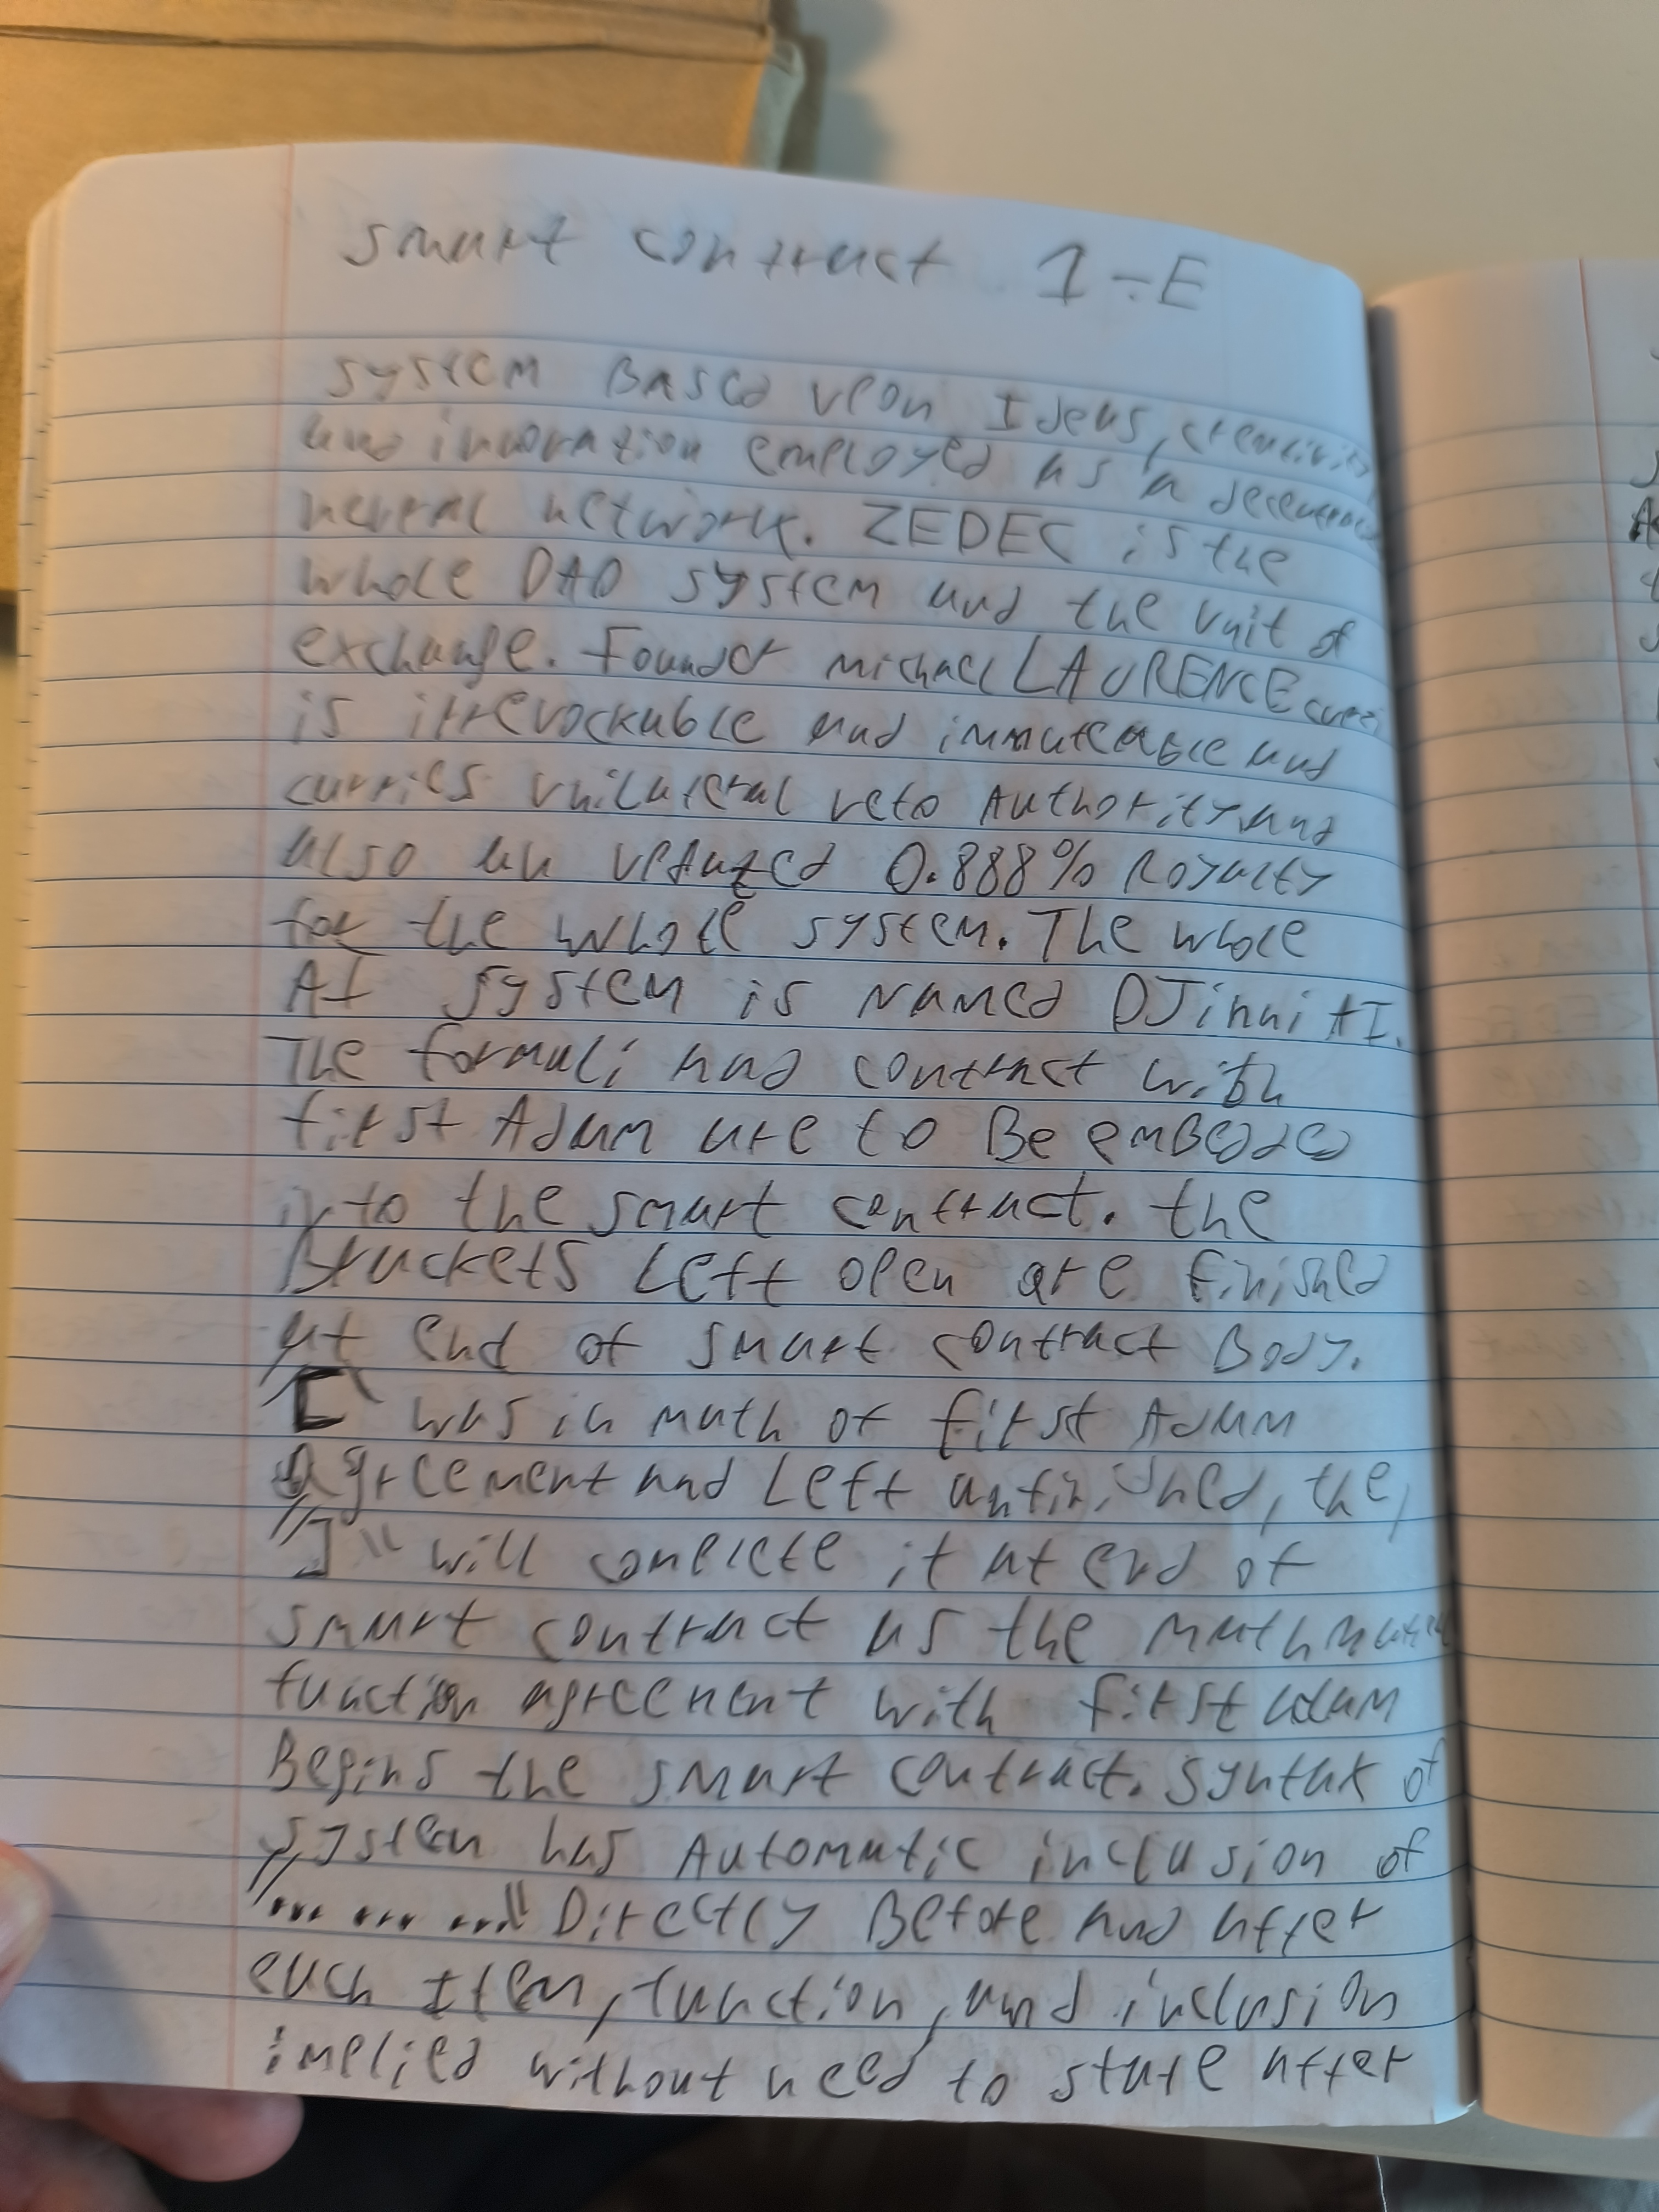 smart contract 1÷E
system Based upon Ideas, creativity
and innovation employed as a
neural network. ZEDEC is the
whole DAO system and the unit of
exchange. Founder michael LAURENCE
is irrevockable and immuteable and
carries unilateral veto Authority and
also an 0.888% Royalty
for the whole system. The whole
AI system is Named DJinni AI.
The formuli and contract with
first Adam are to Be
into the smart contract. the
Brackets Left open are finished
at end of smart contract Body.
"[" was in math of first Adam
Agreement and Left unfinished, the,
"]" will complete it at end of
smart contract as the
function agreement with first adam
Begins the smart contract. syntax of
system has Automatic inclusion of
"... ... ..." Directly Before and after
each Item, function, and inclusion
implied without need to state after